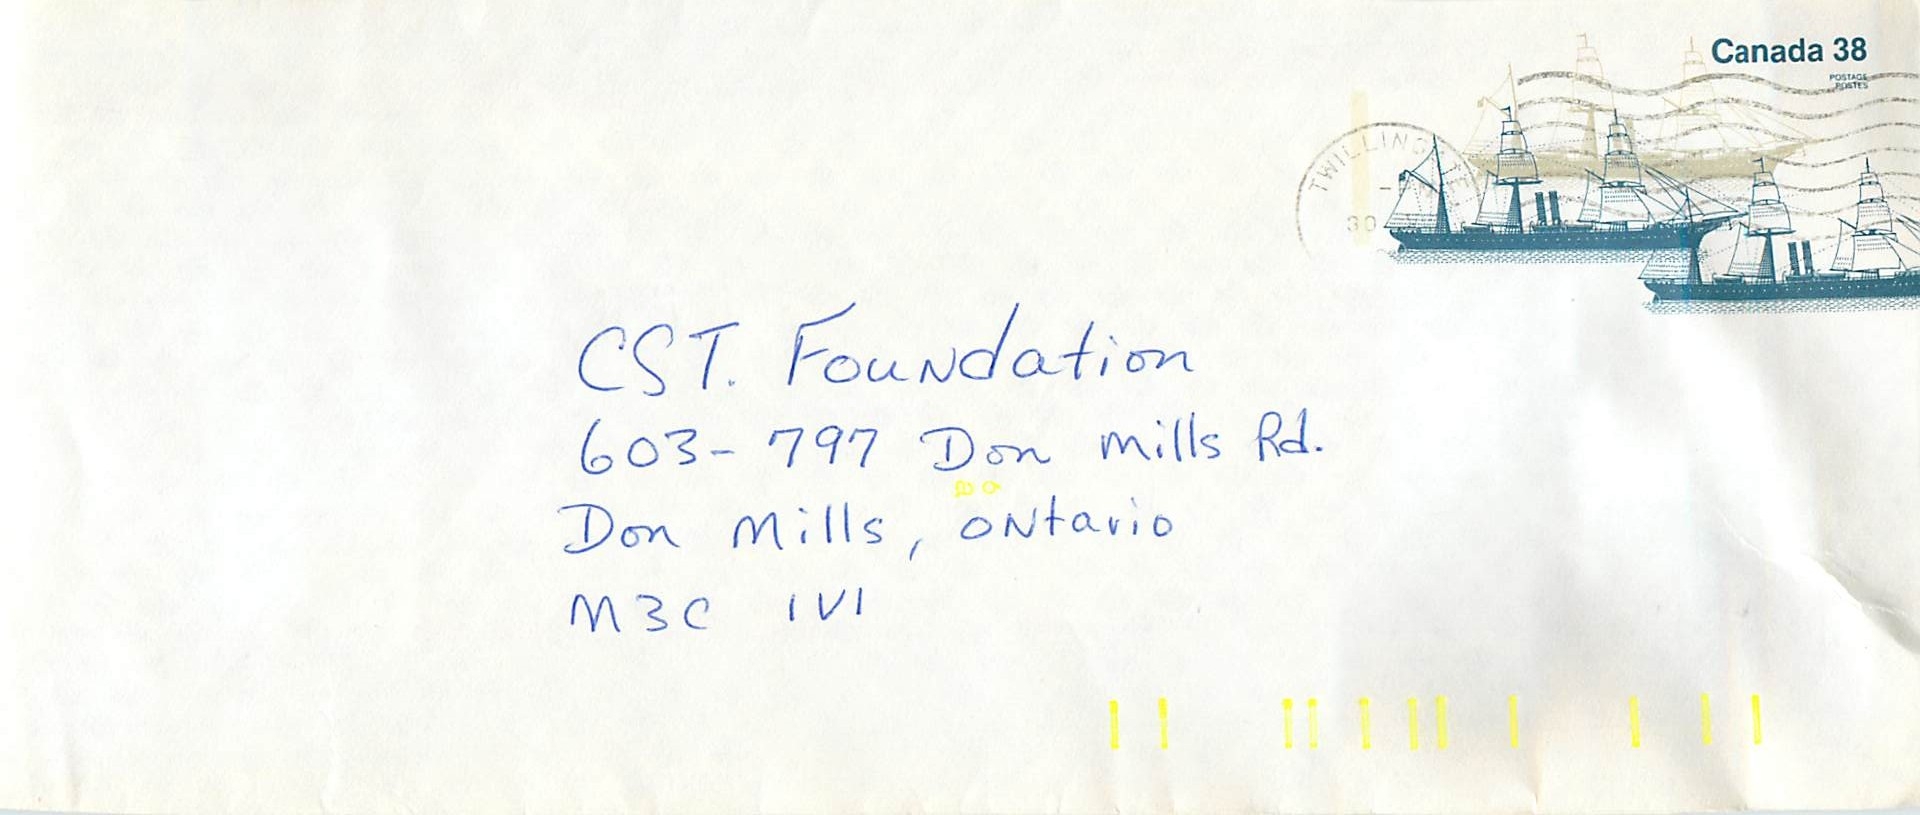 Canada 38
POSTAGE
POSTES
30
CST. Foundation
603-797 Don Mills Rd.
Don Mills, Ontario
M3C 1V1